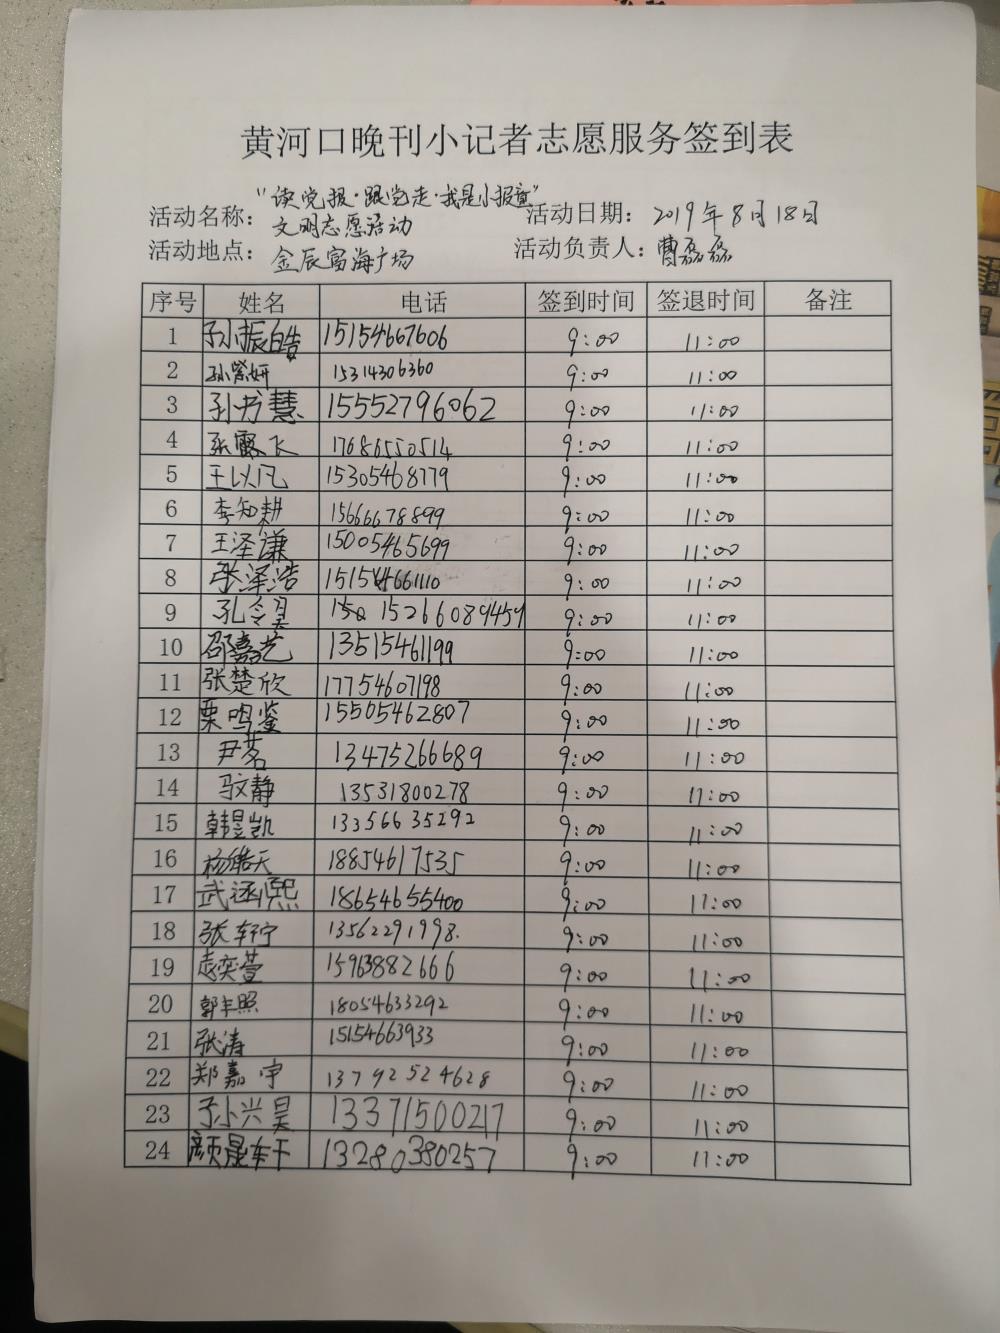 黄河口晚刊小记者志愿服务签到表
"读党报·跟党走·我是小报童"
活动名称： 文明志愿活动 活动日期： 2019年8月18日
活动地点： 金辰富海广场 活动负责人：曹磊磊
序号 姓名 电话 签到时间 签退时间 备注
1 孙振皓 15154667606 9:00 11:00
2 孙紫妍 15314306360 9:00 11:00
3 孙书慧 15552796062 9:00 11:00
4 张霰飞 17686550514 9:00 11:00
5 王以凡 15305468779 9:00 11:00
6 李知耕 15666678899 9:00 11:00
7 王泽谦 15005465699 9:00 11:00
8 张泽浩 15154661110 9:00 11:00
9 孔令昊 15266089459 9:00 11:00
10 邵嘉艺 13515461199 9:00 11:00
11 张楚欣 17754607198 9:00 11:00
12 栗鸣鉴 15505462807 9:00 11:00
13 尹茗 13475266689 9:00 11:00
14 马文静 13531800278 9:00 11:00
15 韩昱凯 13356635292 9:00 11:00
16 杨皓天 18854617535 9:00 11:00
17 武涵熙 18654655400 9:00 11:00
18 张轩宁 13562291998. 9:00 11:00
19 赵奕萱 15963882666 9:00 11:00
20 郭丰照 18054633292 9:00 11:00
21 张涛 15154663933 9:00 11:00
22 郑嘉宇 13792524628 9:00 11:00
23 孙兴昊 13371500217 9:00 11:00
24 颜晟轩 13280380257 9:00 11:00